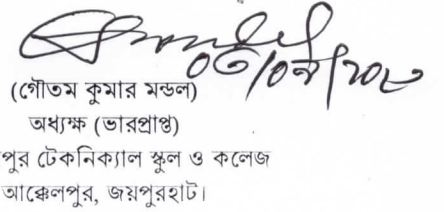 (গৌতম কুমার মন্ডল)
অধ্যক্ষ (ভারপ্রাপ্ত)
পুর টেকনিক্যাল স্কুল ও কলেজ
আক্কেলপুর, জয়পুরহাট।